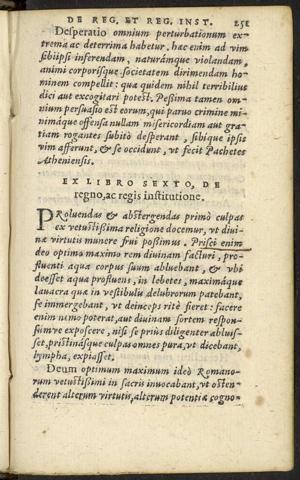 DE REG. ET REG. INST. 251
Desperatio omnium perturbationum ex-
trema ac deterrima habetur, hac enim ad vim
sibiipsi inferendam, naturámque violandam,
animi corporisque societatem dirimendam ho-
minem compellit: qua quidem nihil terribilius
dici aut excogitari potest. Pessima tamen om-
nium persuasio est eorum, qui paruo crimine mi-
nimáque offensa nullam misericordiam aut gra-
tiam rogantes subitò desperant, sibique ipsis
vim afferunt, & se occidunt, vt fecit Pachetes
Atheniensis.
EX LIBRO SEXTO, DE
regno, ac regis institutione.
PRoluendas & abstergendas primò culpas
ex vetustissima religione docemur, vt diui-
na virtutis munere frui possimus. Prisci enim
deo optimo maximo rem diuinam facturi, pro-
fluenti aqua corpus suum abluebant, & vbi
deesset aqua profluens, in lebetes, maximáque
lauacra quæ in vestibulis delubrorum patebant,
se immergebant, vt deinceps ritè fieret: facere
enim nemo poterat, aut diuinam sortem respon-
sumve exposcere, nisi se priùs diligenter abluis-
set, pristinásque culpas omnes pura, vt dicebant,
lympha, expiasset.
Deum optimum maximum ideò Romano-
rum vetustissimi in sacris inuocabant, vt osten-
derent alterum virtutis, alterum potentiæ cogno-